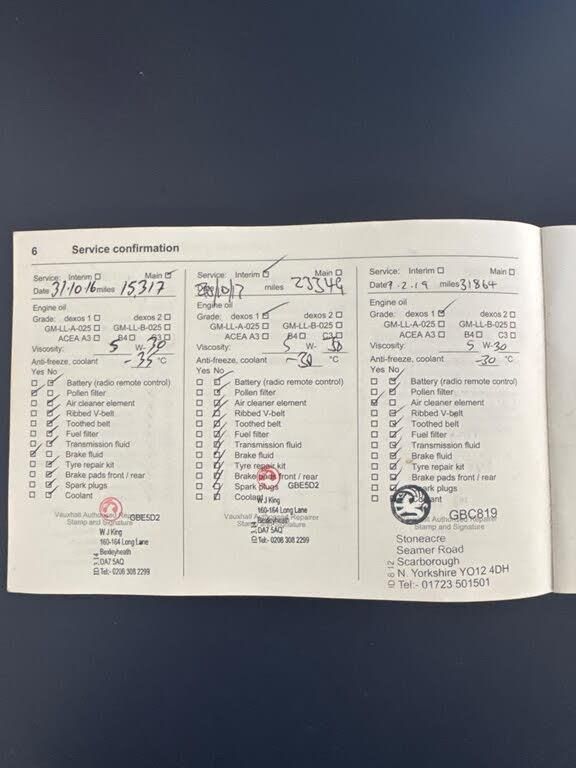 6 Service confirmation
Service: Interim Main
Date 31.10.16 miles 15,317
Engine oil
Grade: dexos 1 dexos 2
GM-LL-A-025 GM-LL-B-025
ACEA A3 B4 C3
Viscosity: 5 W- 30
Anti-freeze, coolant -35 °C
Yes No
Battery (radio remote control)
Pollen filter
Air cleaner element
Ribbed V-belt
Toothed belt
Fuel filter
Transmission fluid
Brake fluid
Tyre repair kit
Brake pads front / rear
Spark plugs
Coolant
GBE5D2
Vauxhall Authorised Repairer
Stamp and Signature
W J King
160-164 Long Lane
Bexleyheath
DA7 5AQ
Tel:- 0208 308 2299
Service: Interim Main
miles 23349
Engine oil
Grade: dexos 1 dexos 2
GM-LL-A-025 GM-LL-B-025
ACEA A3 B4 C3
Viscosity: 5 W- 30
Anti-freeze, coolant -30 °C
Yes No
Battery (radio remote control)
Pollen filter
Air cleaner element
Ribbed V-belt
Toothed belt
Fuel filter
Transmission fluid
Brake fluid
Tyre repair kit
Brake pads front / rear
Spark plugs
GBE5D2
Coolant
W J King
Vauxhall Authorised Repairer
160-164 Long Lane
Stamp and Signature
Bexleyheath
DA7 5AQ
Tel:- 0208 308 2299
Service: Interim Main
Date 9.2.19 miles 31864
Engine oil
Grade: dexos 1 dexos 2
GM-LL-A-025 GM-LL-B-025
ACEA A3 B4 C3
Viscosity: 5 W-30
Anti-freeze, coolant -30 °C
Yes No
Battery (radio remote control)
Pollen filter
Air cleaner element
Ribbed V-belt
Toothed belt
Fuel filter
Transmission fluid
Brake fluid
Tyre repair kit
Brake pads front / rear
Spark plugs
Coolant
GBC819
Vauxhall Authorised Repairer
Stamp and Signature
Stoneacre
Seamer Road
Scarborough
N. Yorkshire YO12 4DH
Tel:- 01723 501501
ID 8 12